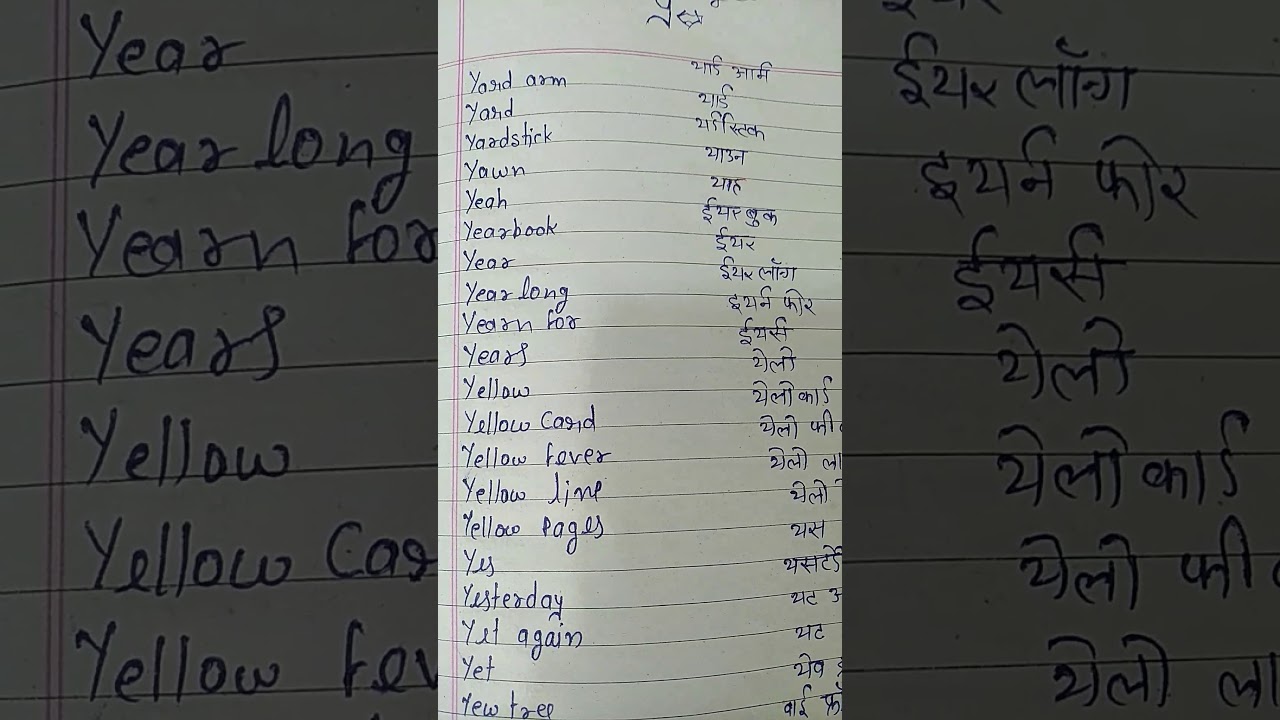 Year
Year long
Yearn for
Years
Yellow
Yellow Car
Yellow fev
Yard arm यार्ड आर्म
Yard यार्ड
Yardstick यर्डस्टिक
Yawn याउन
Yeah याह
Yearbook ईयर बुक
Year ईयर
Year long ईयर लॉंग
Yearn for इयर्न फोर
Years ईयर्स
Yellow येलो
Yellow Card येलो कार्ड
Yellow fever येलो फी
Yellow line येलो ला
Yellow pages येलो
Yes यस
Yesterday यसटर्डे
Yet again यट अ
Yet यट
Yew tree येव
वाई फॉ
ईयर लॉंग
इयर्न फोर
ईयर्स
येलो
येलो कार्ड
येलो फी
येलो ला